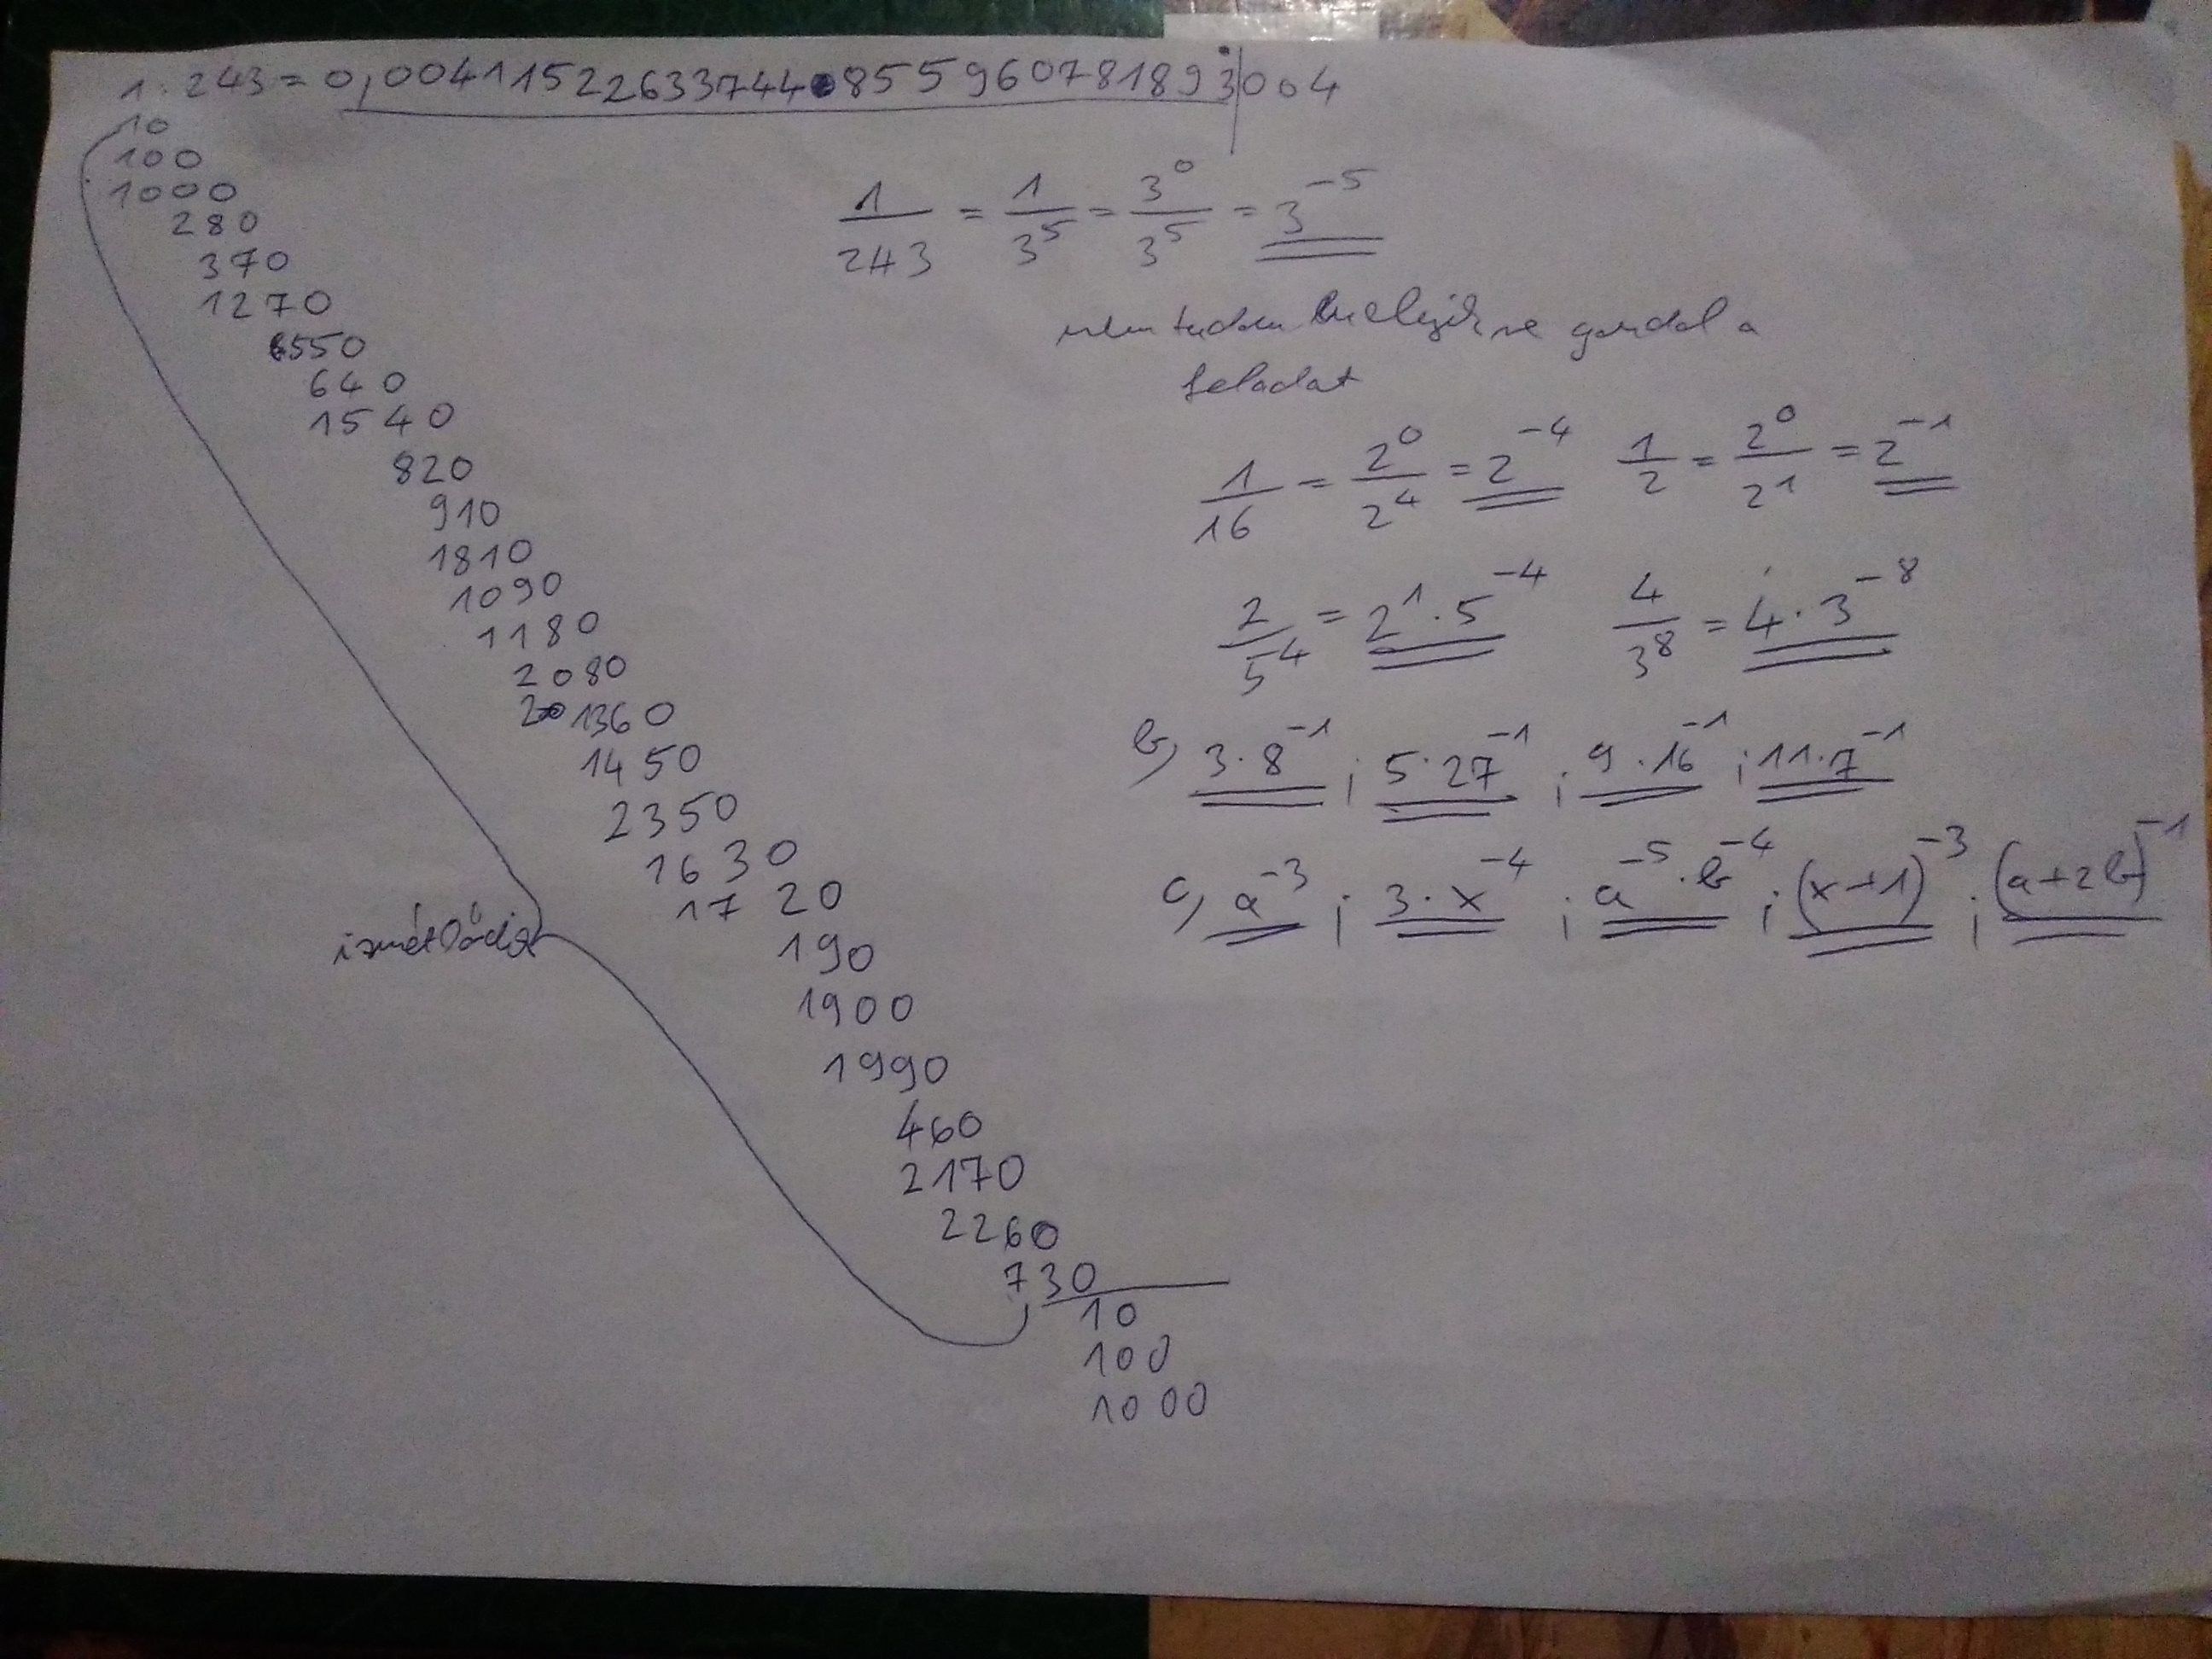 1 : 243 = 0,004115226337448559607818930̇04
10
100
1000
280
370
1270
550
640
1540
820
910
1810
1090
1180
2080
1360
1450
2350
1630
1720
190
1900
1990
460
2170
2260
730
10
100
1000
ismétlődik
1/243 = 1/3⁵ = 3⁰/3⁵ = 3⁻⁵
nem tudom melyikre gondol a
feladat
1/16 = 2⁰/2⁴ = 2⁻⁴ 1/2 = 2⁰/2¹ = 2⁻¹
2/5⁴ = 2¹·5⁻⁴ 4/3⁸ = 4·3⁻⁸
b) 3·8⁻¹ ; 5·27⁻¹ ; 9·16⁻¹ ; 11·7⁻¹
c) a⁻³ ; 3·x⁻⁴ ; a⁻⁵·b⁻⁴ ; (x+1)⁻³ ; (a+2b)⁻¹